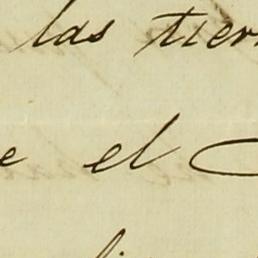 las tier
e el